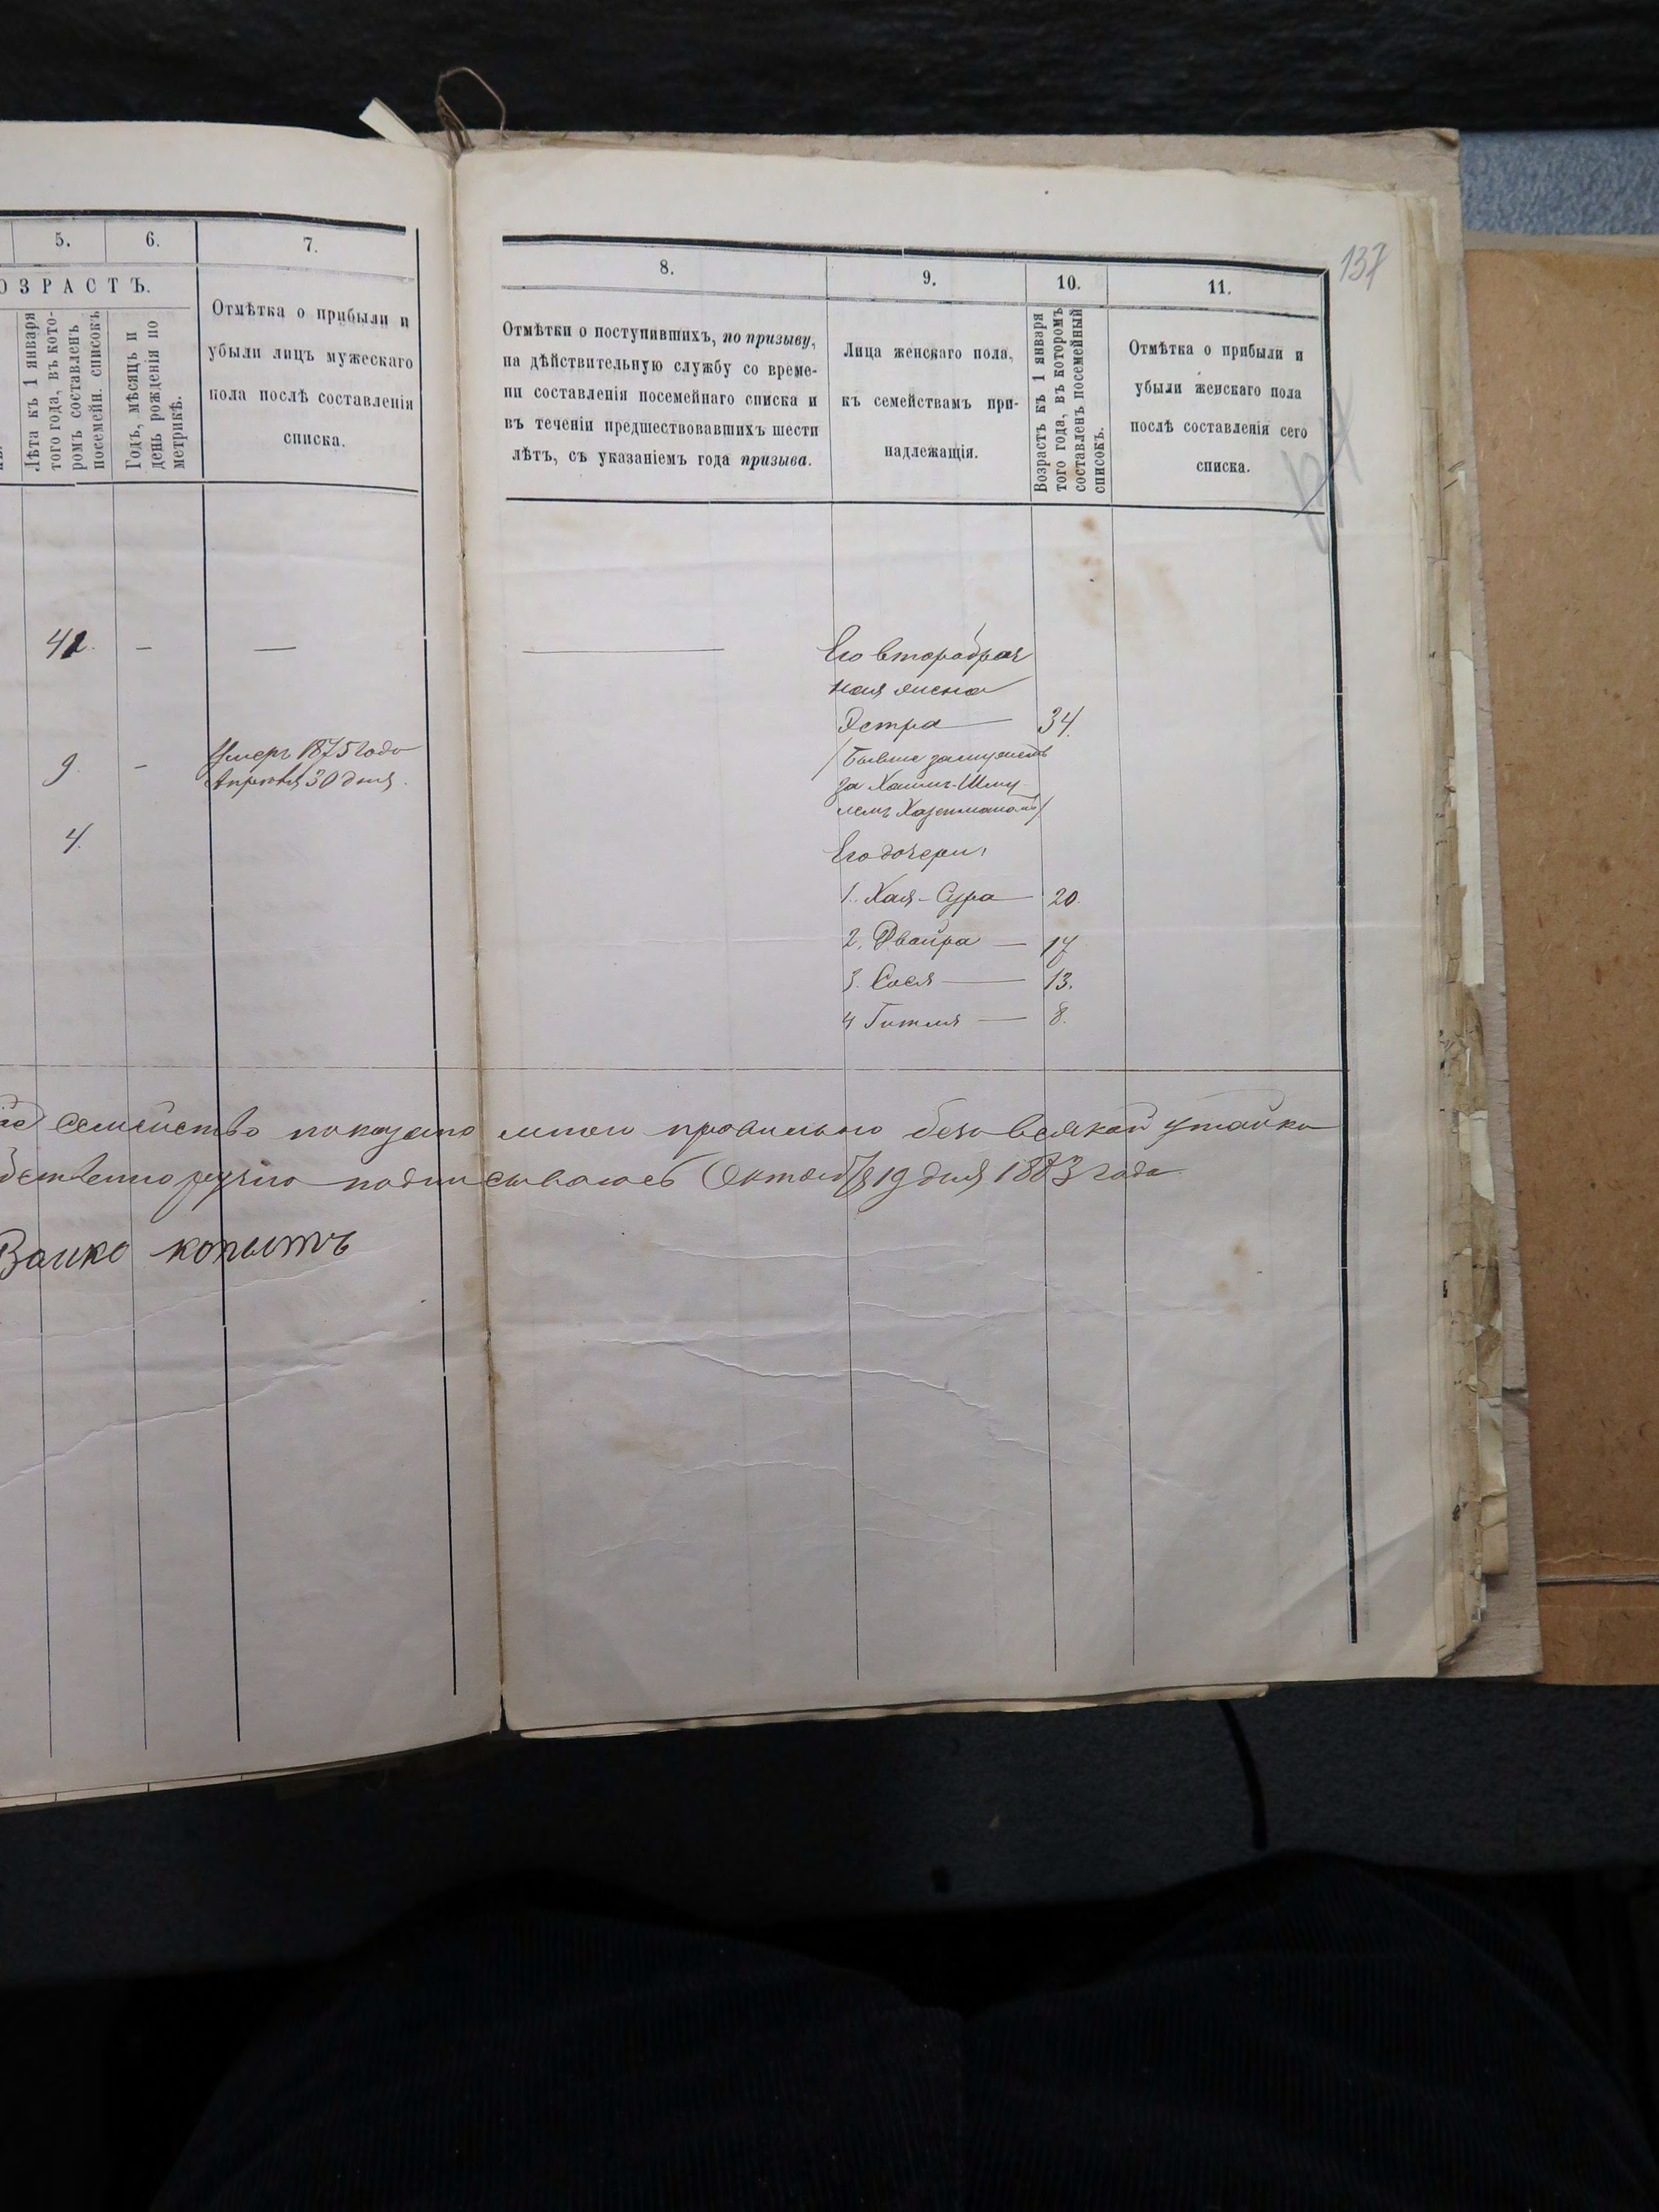 5.
6.
7.
ОЗРАСТЪ.
Лѣта къ 1 января
того года, въ кото-
ромъ составленъ
посемейн. списокъ
Годъ, мѣсяцъ и
день рожденія по
метрикѣ.
Отмѣтка о прибыли и
убыли лицъ мужескаго
пола послѣ составленія
списка.
—
—
9.
—
Умеръ 1875 года
Апрѣля 30 дня.
4.
137
8.
9.
10.
11.
Отмѣтки о поступившихъ, по призыву,
на дѣйствительную службу со време-
ни составленія посемейнаго списка и
въ теченіи предшествовавшихъ шести
лѣтъ, съ указаніемъ года призыва.
Лица женскаго пола,
къ семействамъ при-
надлежащія.
Возрастъ къ 1 января
того года, въ которомъ
составленъ посемейный
списокъ.
Отмѣтка о прибыли и
убыли женскаго пола
послѣ составленія сего
списка.
Его вторабрач
ная жена
Эстра — 34.
/бывше замужемъ
за Хаимъ-Шму-
лемъ
Его дочери:
1. Хая-Сура — 20.
2. Двайра — 17
3. Сося — 13.
4 Гитля — 8.
семейство показано мною правильно безо всякой утайки
подписываюсь Октября 19 дня 1883 года
копытъ